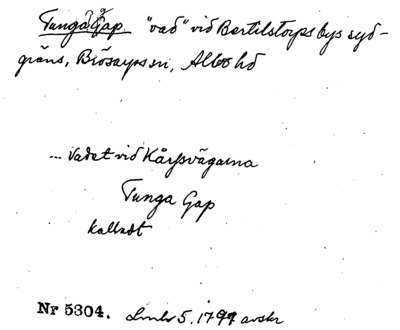 Tunga Gap "vad" vid Bertilstorps bys syd-
gräns, Brösarps sn, Albo hd
... Vadet vid Kårpsvägarna
Tunga Gap
kalladt
Nr 5304. 5. 1797 avskr